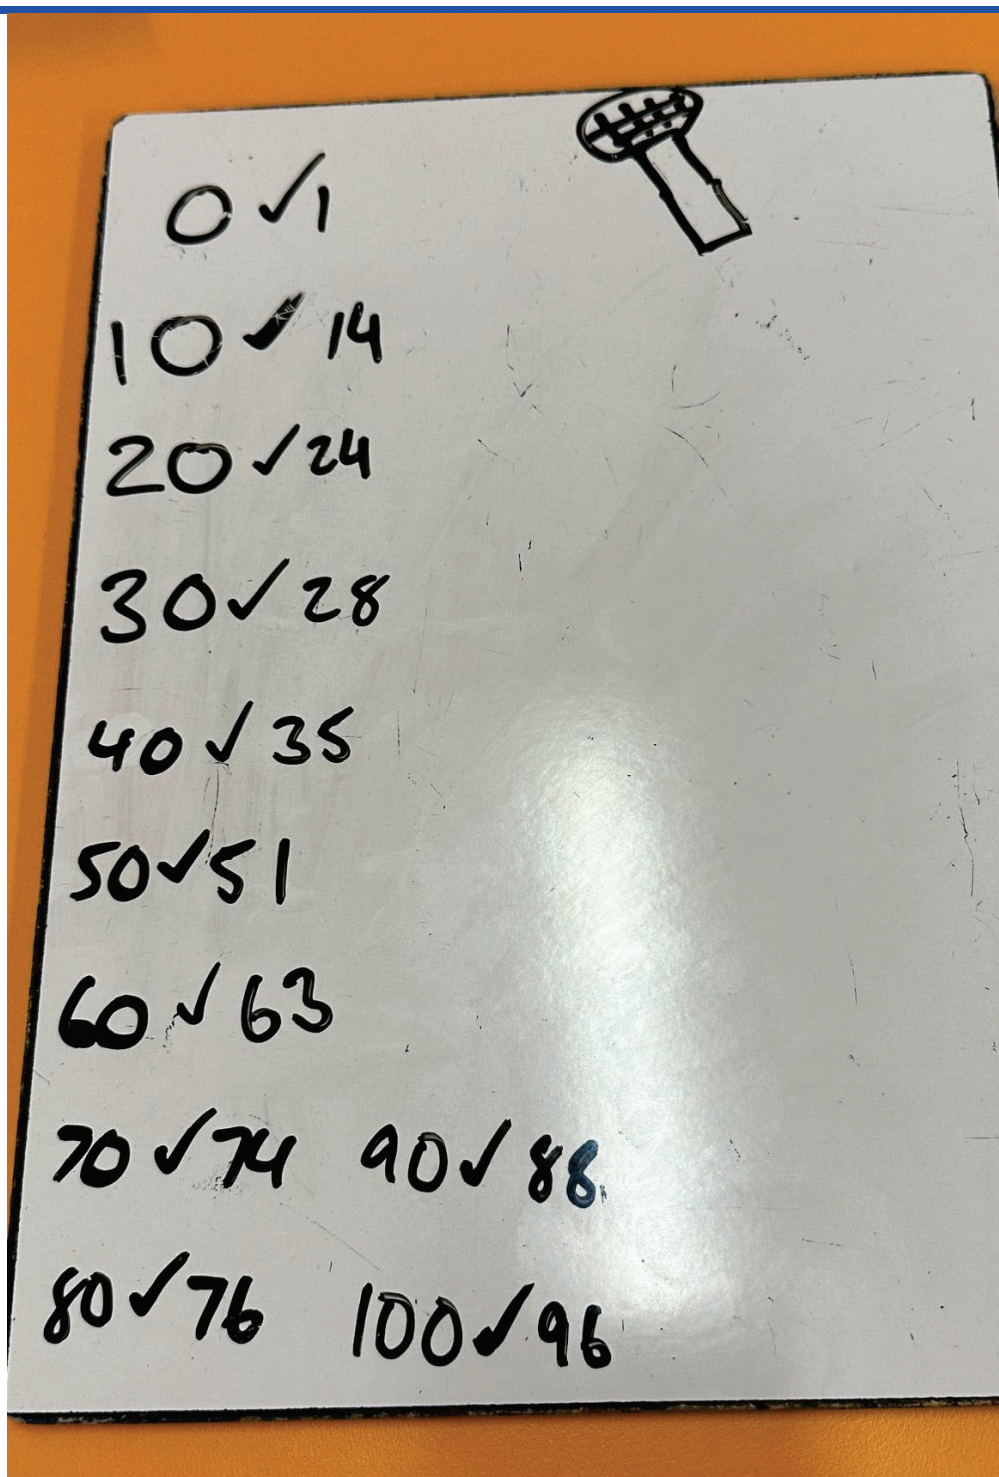 0 ✓ 1
10 ✓ 14
20 ✓ 24
30 ✓ 28
40 ✓ 35
50 ✓ 51
60 ✓ 63
70 ✓ 74 90 ✓ 88
80 ✓ 76 100 ✓ 96